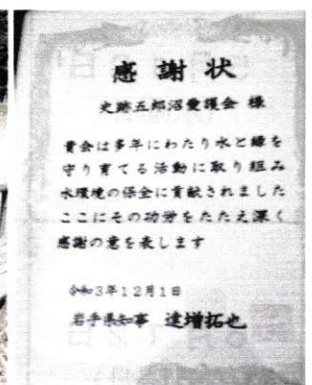 感謝状
史跡五郎沼愛護会 様
貴会は多年にわたり水と緑を
守り育てる活動に取り組み
水環境の保全に貢献されました
ここにその功労をたたえ深く
感謝の意を表します
令和3年12月1日
岩手県知事 達増拓也